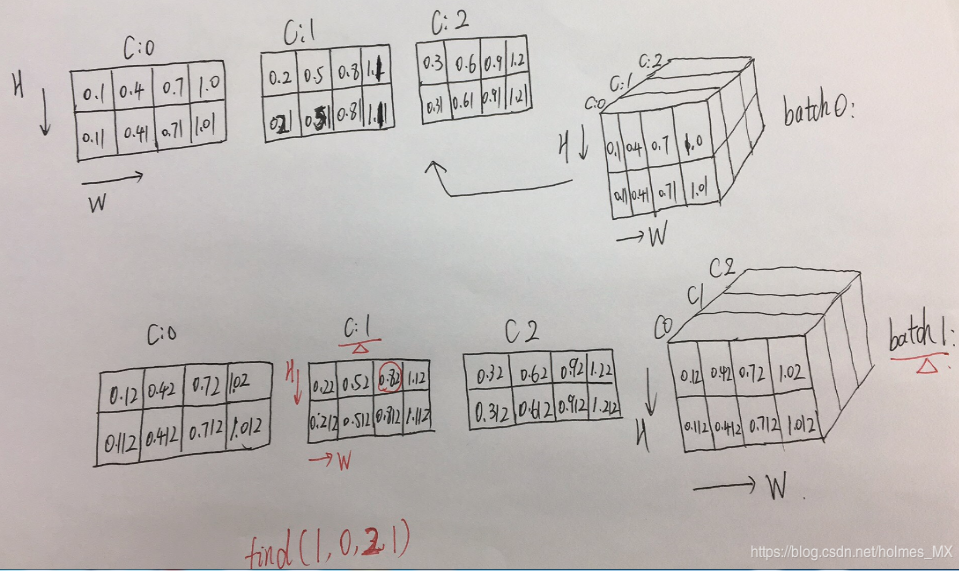 C:0 C:1 C:2
H
0.1 0.4 0.7 1.0
0.11 0.41 0.71 1.01
W
0.2 0.5 0.8 1.1
0.21 0.51 0.81 1.11
0.3 0.6 0.9 1.2
0.31 0.61 0.91 1.21
C:0 C:1 C:2
H
0.1 0.4 0.7 1.0
0.11 0.41 0.71 1.01
W
batch0:
C:0 C:1 C2
0.12 0.42 0.72 1.02
0.112 0.412 0.712 1.012
H
0.22 0.52 0.82 1.12
0.212 0.512 0.812 1.112
W
0.32 0.62 0.92 1.22
0.312 0.612 0.912 1.212
C0 C1 C2
H
0.12 0.42 0.72 1.02
0.112 0.412 0.712 1.012
W
batch1:
find(1,0,2,1)
https://blog.csdn.net/holmes_MX